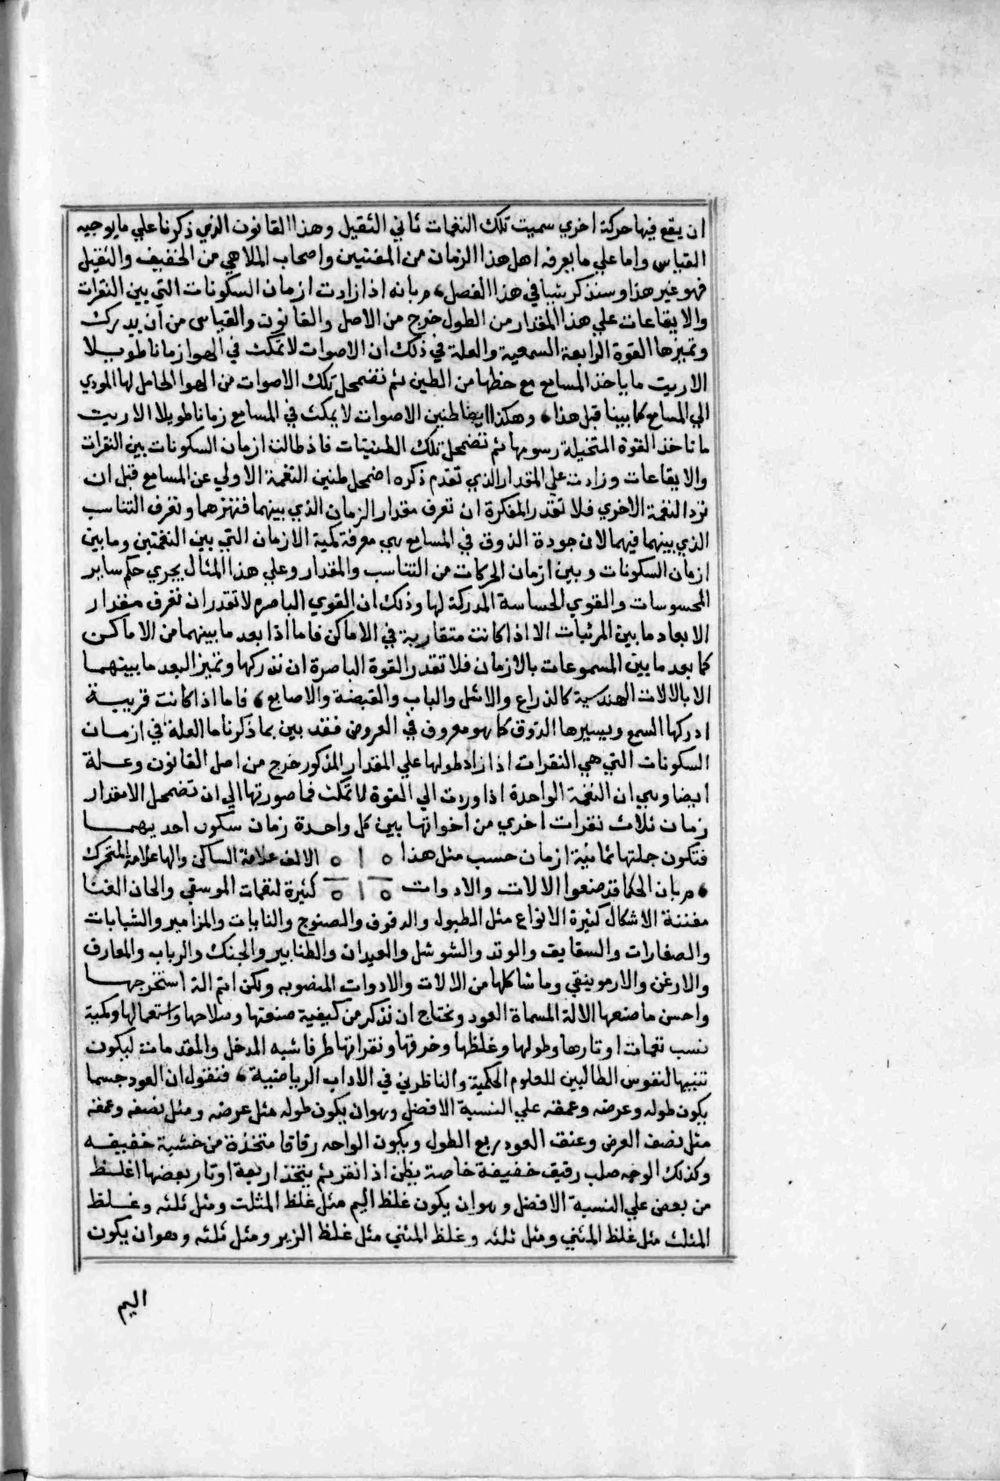 ان يقع فيها حركة اخري سميت تلك النغمات ثاني الثقيل وهذا القانون الذي ذكرنا علي ما يوجبه
القياس واما علي ما يعرفه اهل هذا الزمان من المغنيين واصحاب الملاهي من الخفيف والثقيل
فهو غير هذا وسنذكر شيا في هذا الفصل م بانه اذا زادت ازمان السكونات التي بين النقرات
والايقاعات علي هذا المقدار من الطول خرج من الاصل والقانون والقياس من ان يدرك
وتميزها القوة الرابعة السمعية والعلة في ذلك ان الاصوات لا تمكث في الهوا زمانا طويلا
الا ريت ما ياخذ المسامع مع حظها من الطنين ثم تضمحل تلك الاصوات من الهوا الحامل لها المودي
الي المسامع كما بينا قبل هذا وهكذا ايضا طنين الاصوات لا يمكث في المسامع زمانا طويلا الا ريت
ما تاخذ القوة المتخيلة رسومها ثم تضمحل تلك الطنينات فاذ طالت ازمان السكونات بين النقرات
والايقاعات وزادت علي المقدار الذي تقدم ذكره اضمحل طنين النغمة الاولي عن المسامع قبل ان
ترد النغمة الاخري فلا تقدر المفكرة ان تعرف مقدار الزمان الذي بينهما فتميزهما وتعرف التناسب
الذي بينهما فيهما لان جودة الذوق في المسامع هي معرفة كمية الازمان التي بين النغمتين وما بين
ازمان السكونات وبين ازمان الحركات من التناسب والمقدار وعلي هذا المثال يجري حكم ساير
المحسوسات والقوي الحساسة المدركة لها وذلك ان القوي الباصره لا تقدران تعرف مقدار
الابعاد ما بين المرئيات الا اذا كانت متقاربة في الاماكن فاما اذا بعد ما بينهما من الاماكن
كما بعد ما بين المسموعات بالازمان فلا تقدر القوة الباصرة ان تدركها وتميز البعد ما بينهما
الا بالالات الهندسية كالذراع والاشل والباب والقبضة والاصابع فاما اذا كانت قريبة
ادركها السمع ويسيرها الذوق كما هو معروف في العروض فقد بين بما ذكرنا ما العلة في ازمان
السكونات التي هي النقرات اذا زاد طولها علي المقدار المذكور خرج من اصل القانون وعلة
ايضا وهي ان النغمة الواحدة اذا وردت الي القوة لا تمكث فما صورتها الي ان تضمحل الا مقدار
زمان ثلاث نقرات اخري من اخواتها بين كل واحدة زمان سكون احديهما
فتكون جلتها ثمانية ازمان حسب مثل هذا ه ا ه الالف علامة الساكن والها علامة المتحرك
م بان الحكما قد صنعوا الالات والادوات ه ا ه كثيرة لنغمات الموسقي والحان الغنا
مفننة الاشكال كثيرة الانواع مثل الطبول والدفوف والصنوج والنايات والمزامير والشبابات
والصفارات والسقايف والوتد والشوشل والعيدان والطنابير والجنك والرباب والمعازف
والارغن والارمونيقي وما شاكلها من الالات والادوات المنصوبه ولكن اتم الة استخرجها
واحسن ما صنعها الالة المسماة العود ونحتاج ان نذكر من كيفية صنعتها وصلاحها واستعمالها وكمية
نسب نغمات اوتارها وطولها وغلظها وخرقها ونقراتها طرفا شبه المدخل والمقدمات ليكون
تنبيها لنفوس الطالبين للعلوم الحكمية والناظرين في الاداب الرياضية فنقول ان العود جسما
يكون طوله وعرضه وعمقه علي النسبة الافضل وهو ان يكون طوله مثل عرضه ومثل نصفه وعمقه
مثل نصف العرض وعنق العود ربع الطول ويكون الواحه رقاقا متخذة من خشبة خفيفه
وكذلك الوجه صلب رقيق خفيفة خاصة يطن اذا نقر ثم يتخذ اربعة اوتار بعضها اغلظ
من بعض علي النسبة الافضل وهو ان يكون غلظ اليم مثل غلظ المثلث ومثل ثلثه وغلظ
المثلث مثل غلظ المثني ومثل ثلثه وغلظ المثني مثل غلظ الزير ومثل ثلثه وهو ان يكون
اليم